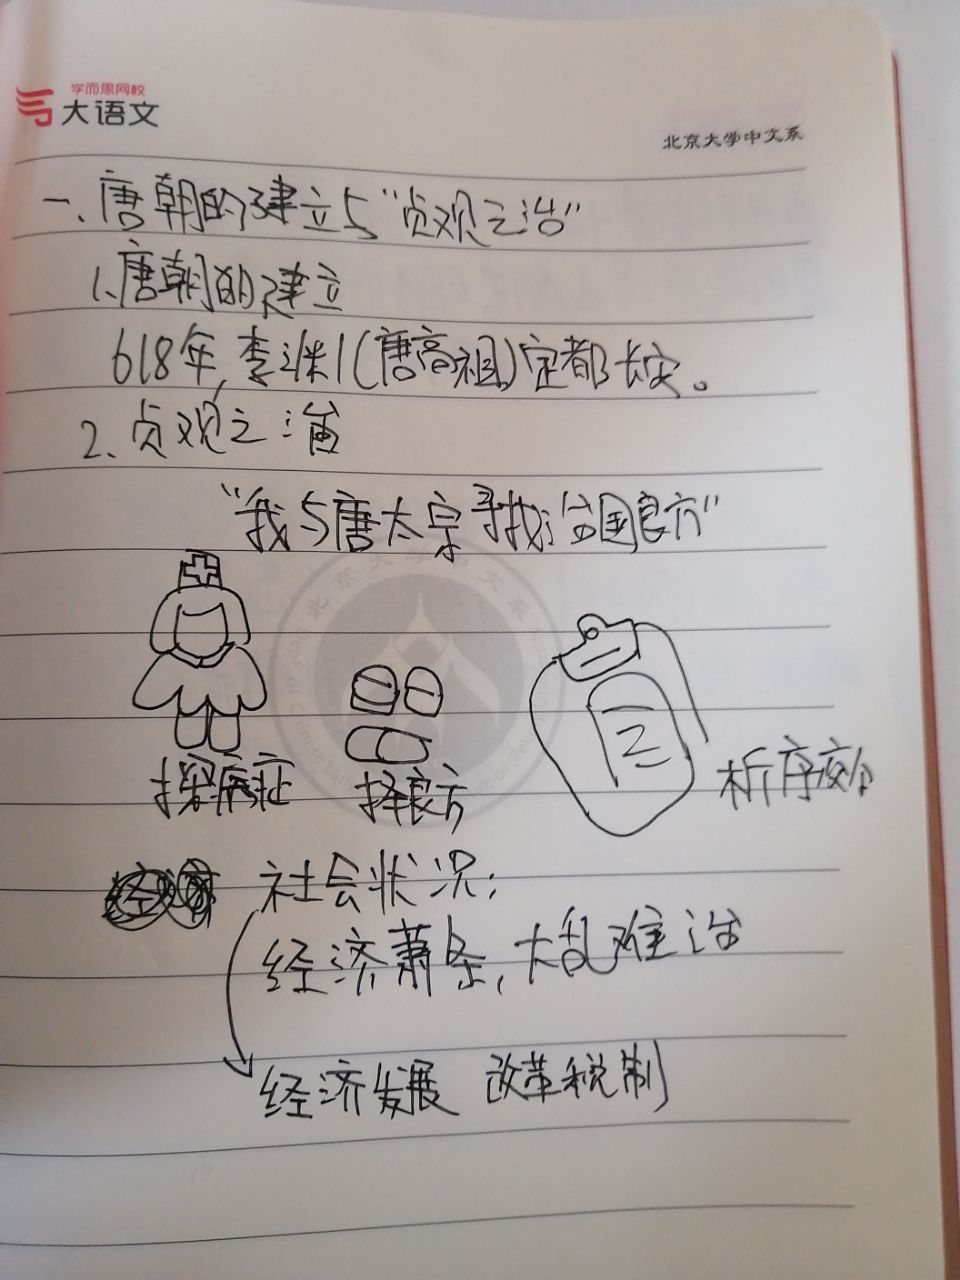 学而思网校
大语文
北京大学中文系
一、唐朝的建立与“贞观之治”
1.唐朝的建立
618年,李渊(唐高祖)定都长安。
2.贞观之治
“我与唐太宗寻找治国良方”
北京大学中文系
探病症
择良方
析疗效
社会状况:
经济萧条,大乱难治
经济发展 改革税制